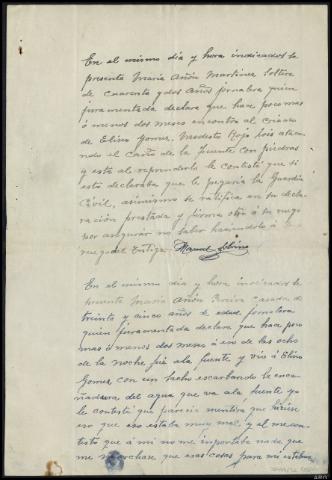 En el mismo día y hora indicados se
presenta María Añón Martínez soltera
de cuarenta y dos años jornalera quien
juramentada declara que hace poco mas
ó menos dos meses encontró al criado
de Elino Gomez, Modesto Rojo
el caño de la fuente con piedras
y esta al reprenderle le contestó que si
esto declaraba que le pegaría la Guardia
Civil, asimismo se ratifica en su decla-
ración prestada y firma otro á su ruego
por asegurar no saber haciendolo á
ruego del Testigo. Manuel Albino
En el mismo día y hora indicados se
presente María Añón casada de
treinta y cinco años de edad jornalera
quien juramentada declara que hace poco
mas ó menos dos meses á eso de las ocho
de la noche fué ala fuente y vió á Elino
Gomez con un hacho escarbando la enca-
ñadura del agua que va ála fuente yo
le contesté que parecia mentira que hiciese
eso que eso estaba muy mal y el me con-
testó que á mi no me importaba nada que
me marchase que esas cosas para mi estaban